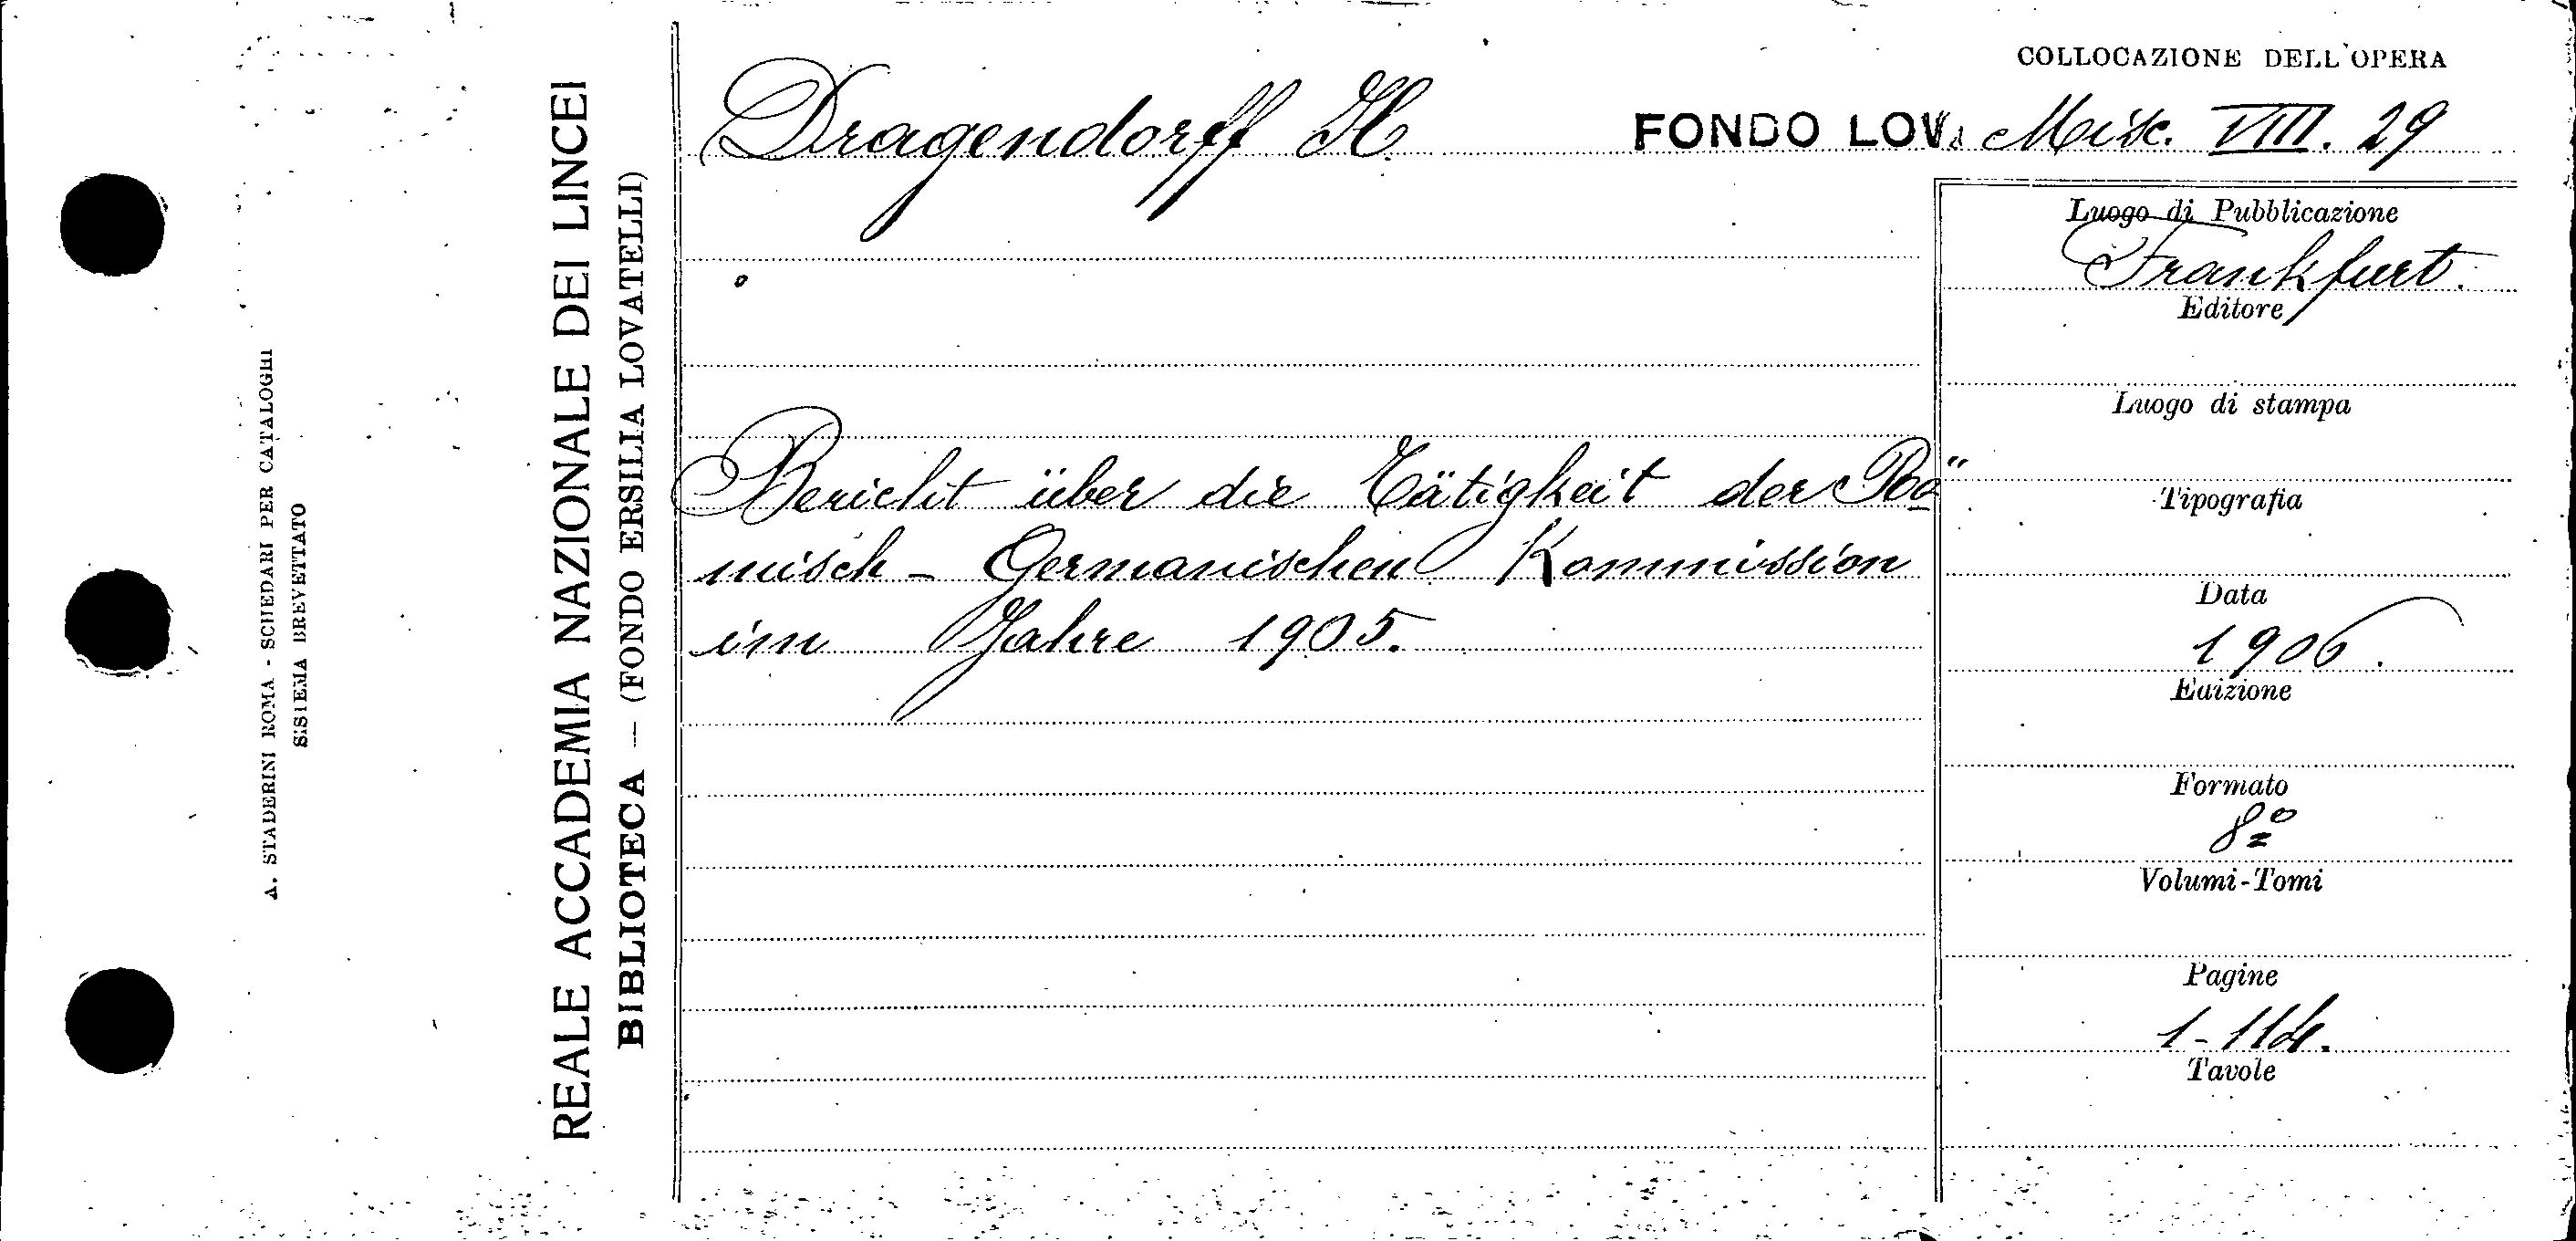 COLLOCAZIONE DELL'OPERA
Dragendorff H.
FONDO LOV. Misc. VIII. 29
Luogo di Pubblicazione
Frankfurt.
Editore
Luogo di stampa
Bericht über die Tätigkeit der Rö
misch - Germanischen Kommission
im Jahre 1905.
Tipografia
Data
1906.
Edizione
Formato
8º
Volumi-Tomi
Pagine
1-114.
Tavole
REALE ACCADEMIA NAZIONALE DEI LINCEI
BIBLIOTECA — (FONDO ERSILIA LOVATELLI)
A. STADERINI ROMA - SCHEDARI PER CATALOGHI
SISTEMA BREVETTATO